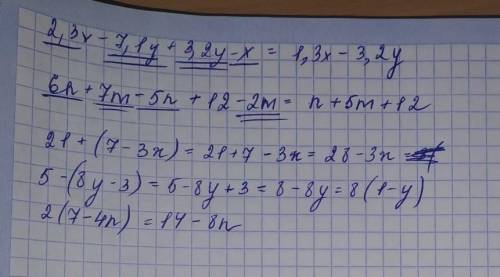 2,3x - 7,1y + 3,2y - x = 1,3x - 3,2y
6n + 7m - 5n + 12 - 2m = n + 5m + 12
21 + (7 - 3x) = 21 + 7 - 3x = 28 - 3x =
5 - (8y - 3) = 5 - 8y + 3 = 8 - 8y = 8(1 - y)
2(7 - 4n) = 14 - 8n